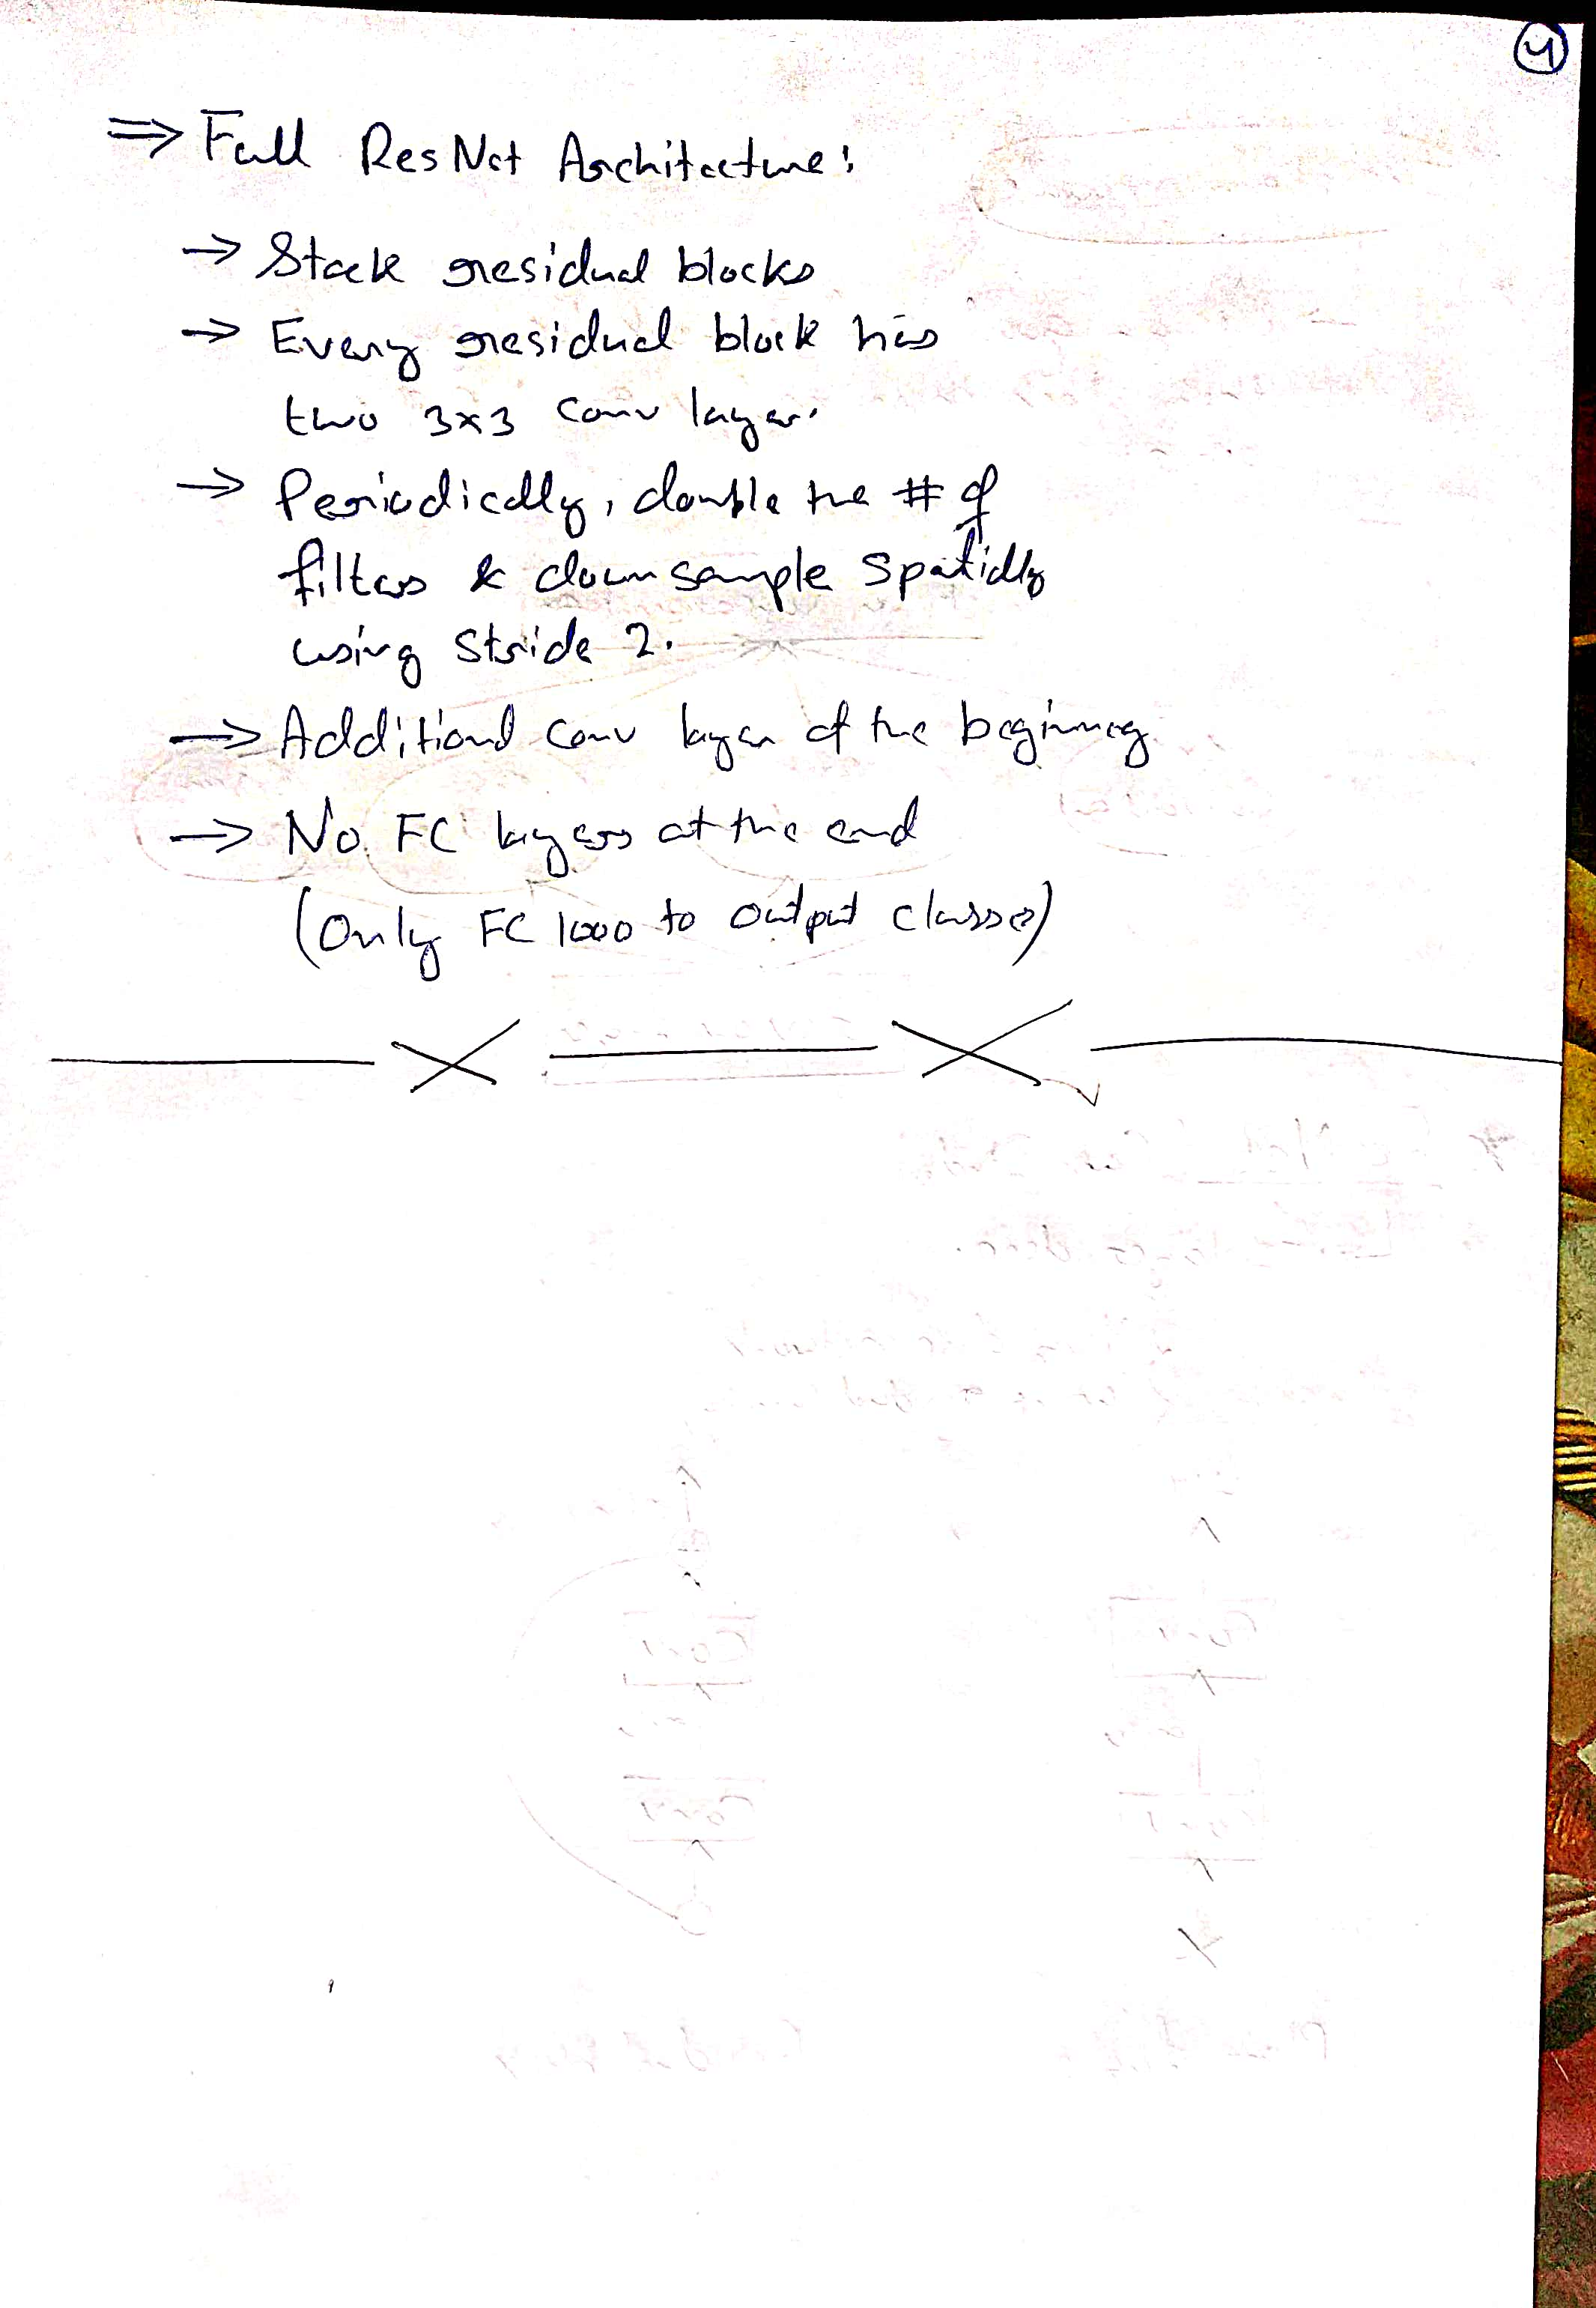 4
⇒ Full ResNet Architecture:
→ Stack residual blocks
→ Every residual block has
two 3x3 conv layer.
→ Periodically, double the # of
filters & downsample spatially
using stride 2.
→ Additional conv layer at the beginning
→ No FC layers at the end
(Only FC 1000 to output classes)